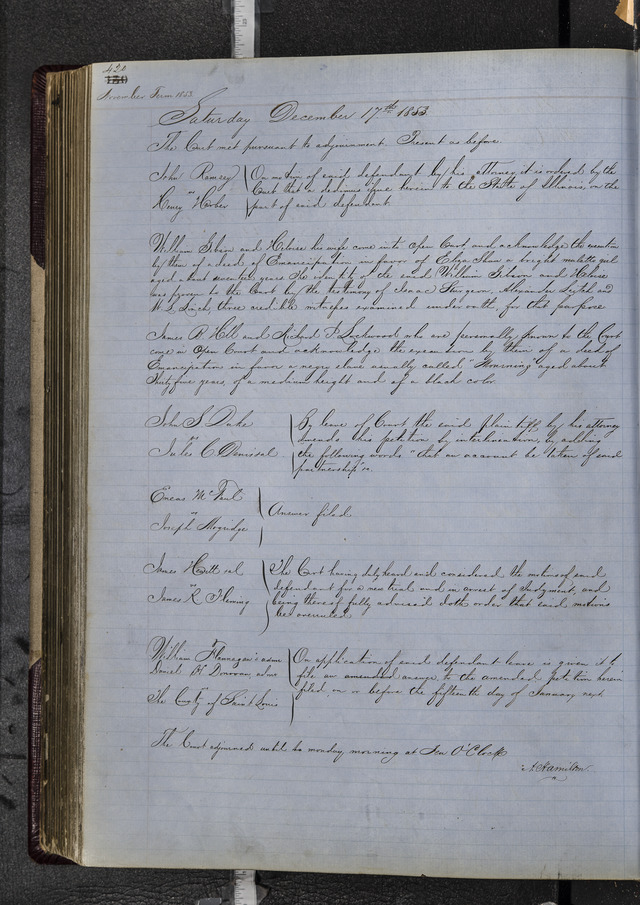 420
November Term 1853
Saturday December 17th 1853
The Court met pursuant to adjournment Present as before.
John Ramsey
vs
Henry
On motion of said defendant by his attorney it is ordered by the
Court that a dedimus issue herein to the State of Illinois, on the
part of said defendant
William and his wife come into open Court, and acknowledge the execution
by them of a deed of Emancipation in favor of Eliza Shaw a bright mulatto girl
aged about seventeen years The identity of the said William and
was proven to the Court by the testimony of Isaac Sturgeon, Alexander and
three credible witnesses examined under oath, for that purpose
James B Hill and Richard F Lockwood who are personally known to the Court
come in Open Court and acknowledge the execution by them of a deed of
Emancipation in favor a negro slave usually called "Mourning" aged about
thirty five years of a medium height and of a black color.
John S Duke
vs
Jules C
By leave of Court the said plaintiff by his attorney
amends his petition by interlineation, by adding
the following words "that an account be taken of said
partnership" &c.
Eneas McFaul
vs
Joseph Mogridge
Answer filed
James et al
vs
James R. Fleming
The Court having duly heard and considered the motions of said
defendant for a new trial and in arrest of Judgment, and
being thereof fully advised doth order that said motions
be overruled
William Flannegan's admr
Daniel H Donovan, admr
vs
The County of Saint Louis
On application of said defendant leave is given it to
file an amended answer to the amended petition herein
filed, on or before the fifteenth day of January next
The Court adjourned until to monday morning at Ten O'Clock
A. Hamilton